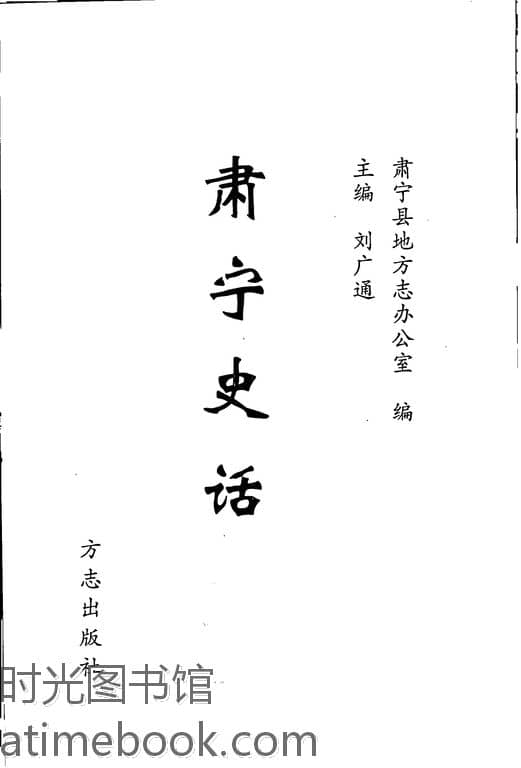 肃宁县地方志办公室 编
主编 刘广通
肃宁史话
方志出版社
时光图书馆
atimebook.com